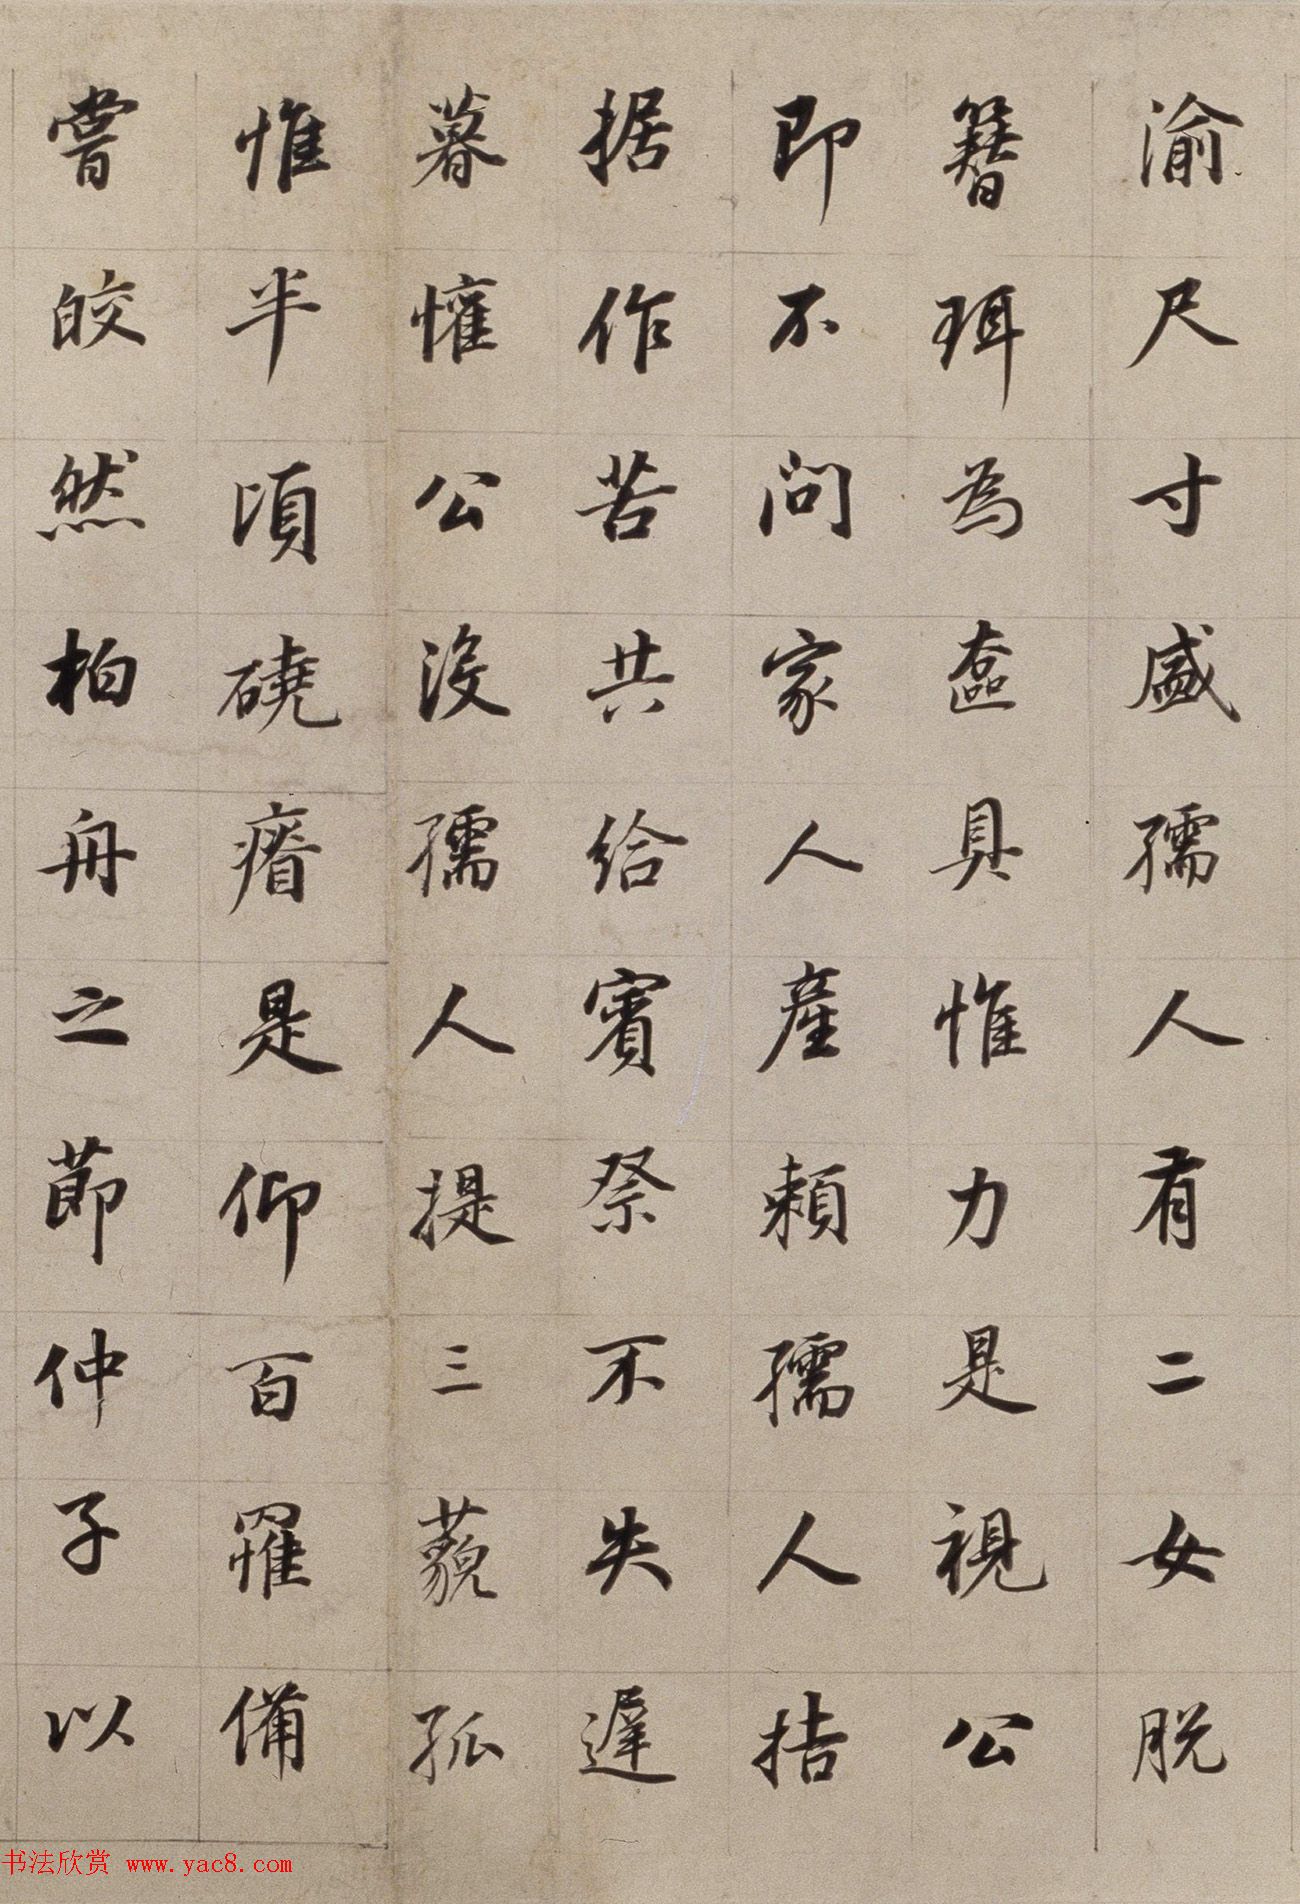 渝尺寸盛孺人有二女脱
簪珥為奩具惟力是視公
即不問家人產賴孺人拮
据作苦共給賓祭不失遲
暮懽公沒孺人提三藐孤
惟半頃磽瘠是仰百罹備
嘗皎然柏舟之節仲子以
书法欣赏 www.yac8.com